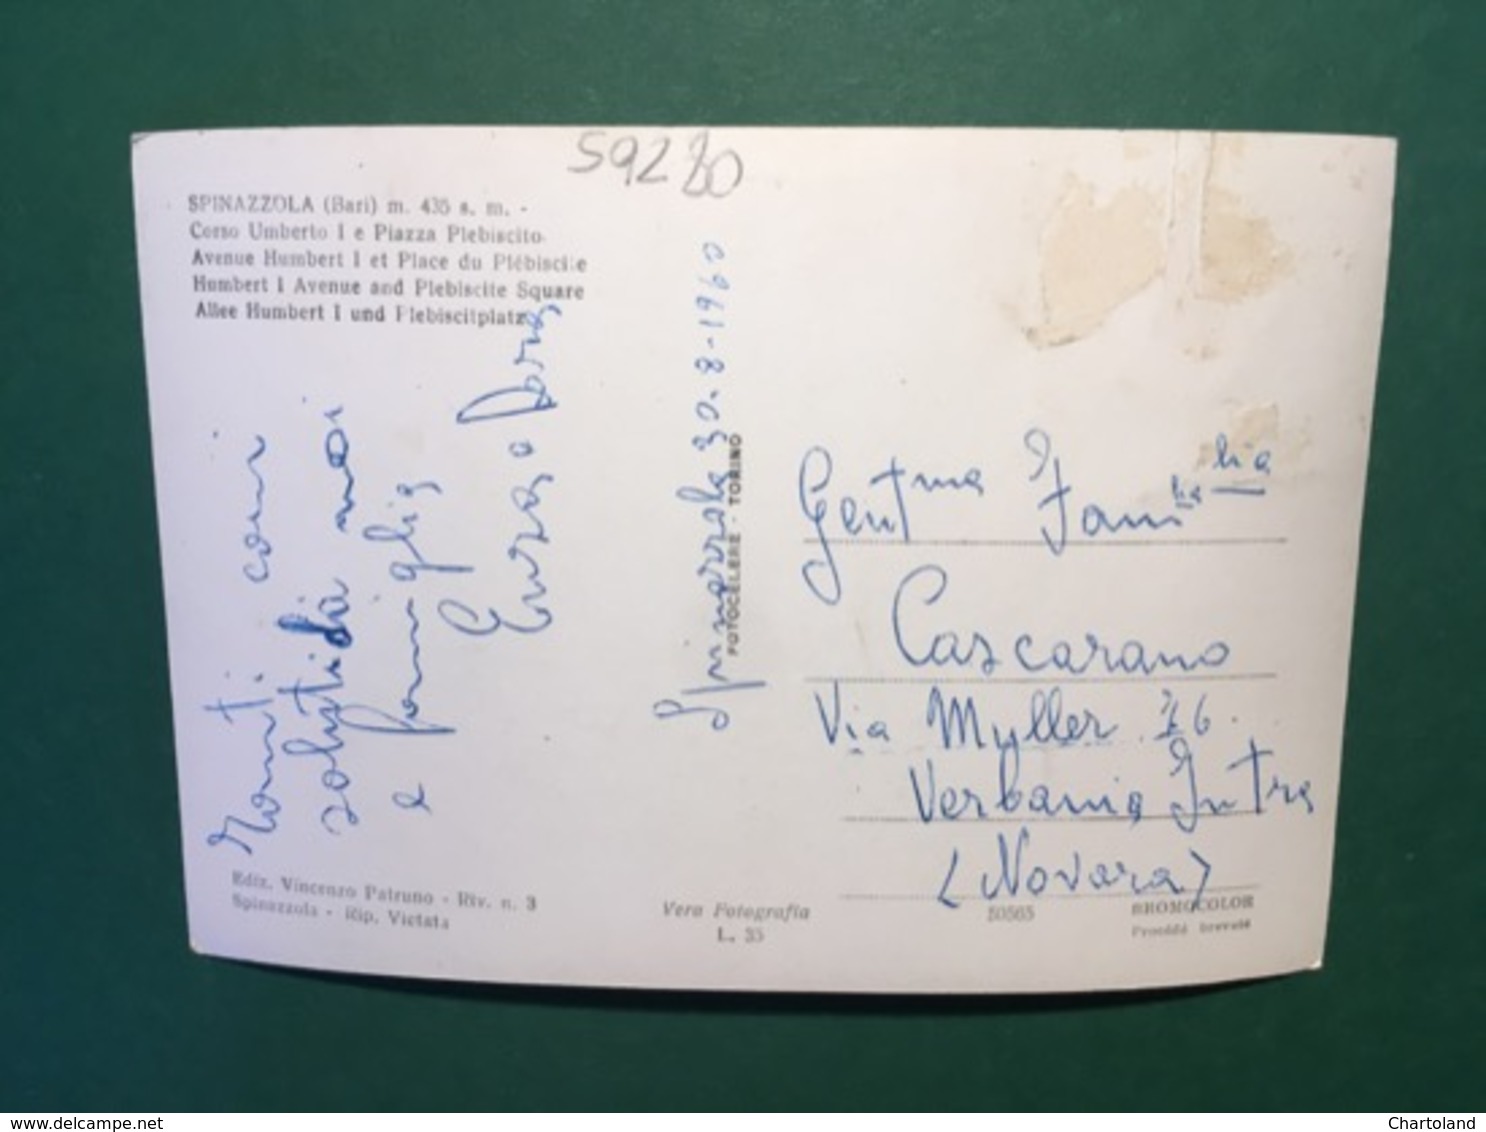 59280
SPINAZZOLA (Bari) m. 435 s. m. -
Corso Umberto I e Piazza Plebiscito
Avenue Humbert I et Place du Plébiscite
Humbert I Avenue and Plebiscite Square
Allee Humbert I und Plebiscitplatz
cari
saluti da noi
e famiglia
Enza e Doria
Spinazzola 30-8-1960
FOTOCELERE - TORINO
Gent.ma Famiglia
Cascarano
Via Myller 46
Verbania Intra
(Novara)
Ediz. Vincenzo Patruno - Riv. n. 3
Spinazzola - Rip. Vietata
Vera Fotografia
L. 35
50565
BROMOCOLOR
Procédé breveté
www.delcampe.net
Chartoland